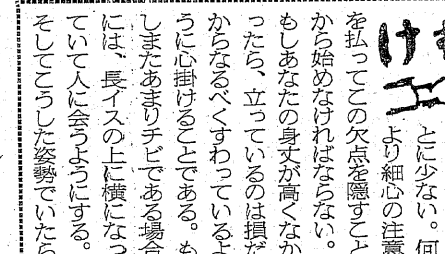 とに少ない。何
より細心の注意
を払ってこの欠点を隠すこと
から始めなければならない。
もしあなたの身丈が高くなか
ったら、立っているのは損だ
からなるべくすわっているよ
うに心掛けることである。も
しまたあまりチビである場合
には、長イスの上に横になっ
ていて人に会うようにする。
そしてこうした姿勢でいたら